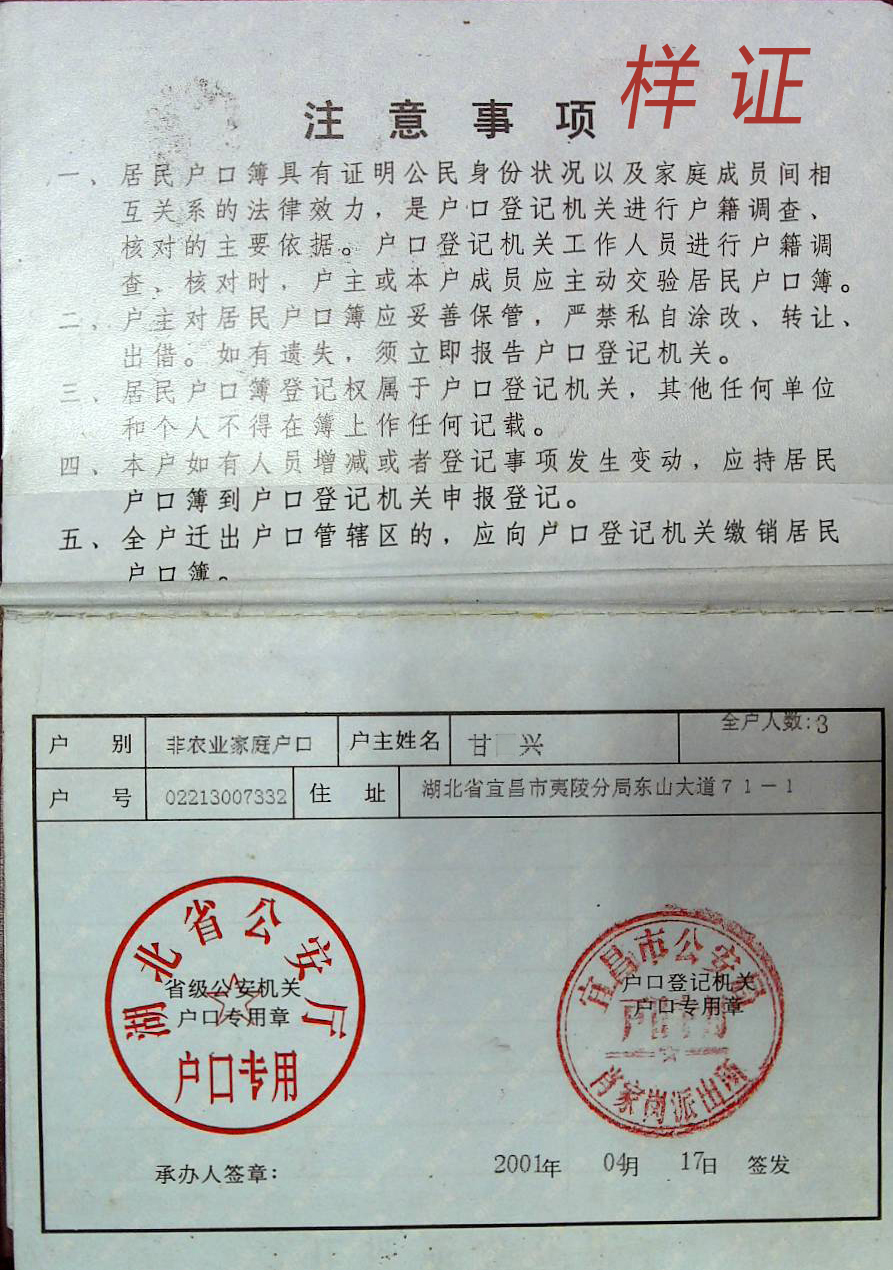 样证
注意事项
一、居民户口簿具有证明公民身份状况以及家庭成员间相
互关系的法律效力，是户口登记机关进行户籍调查、
核对的主要依据。户口登记机关工作人员进行户籍调
查、核对时，户主或本户成员应主动交验居民户口簿。
二、户主对居民户口簿应妥善保管，严禁私自涂改、转让、
出借。如有遗失，须立即报告户口登记机关。
三、居民户口簿登记权属于户口登记机关，其他任何单位
和个人不得在簿上作任何记载。
四、本户如有人员增减或者登记事项发生变动，应持居民
户口簿到户口登记机关申报登记。
五、全户迁出户口管辖区的，应向户口登记机关缴销居民
户口簿。
户别 非农业家庭户口 户主姓名 甘 兴 全户人数：3
户号 02213007332 住址 湖北省宜昌市夷陵分局东山大道71－1
湖北省公安厅
省级公安机关
户口专用章
户口专用
宜昌市公安局
户口登记机关
户口专用章
肖家岗派出所
2001年 04月 17日 签发
承办人签章：